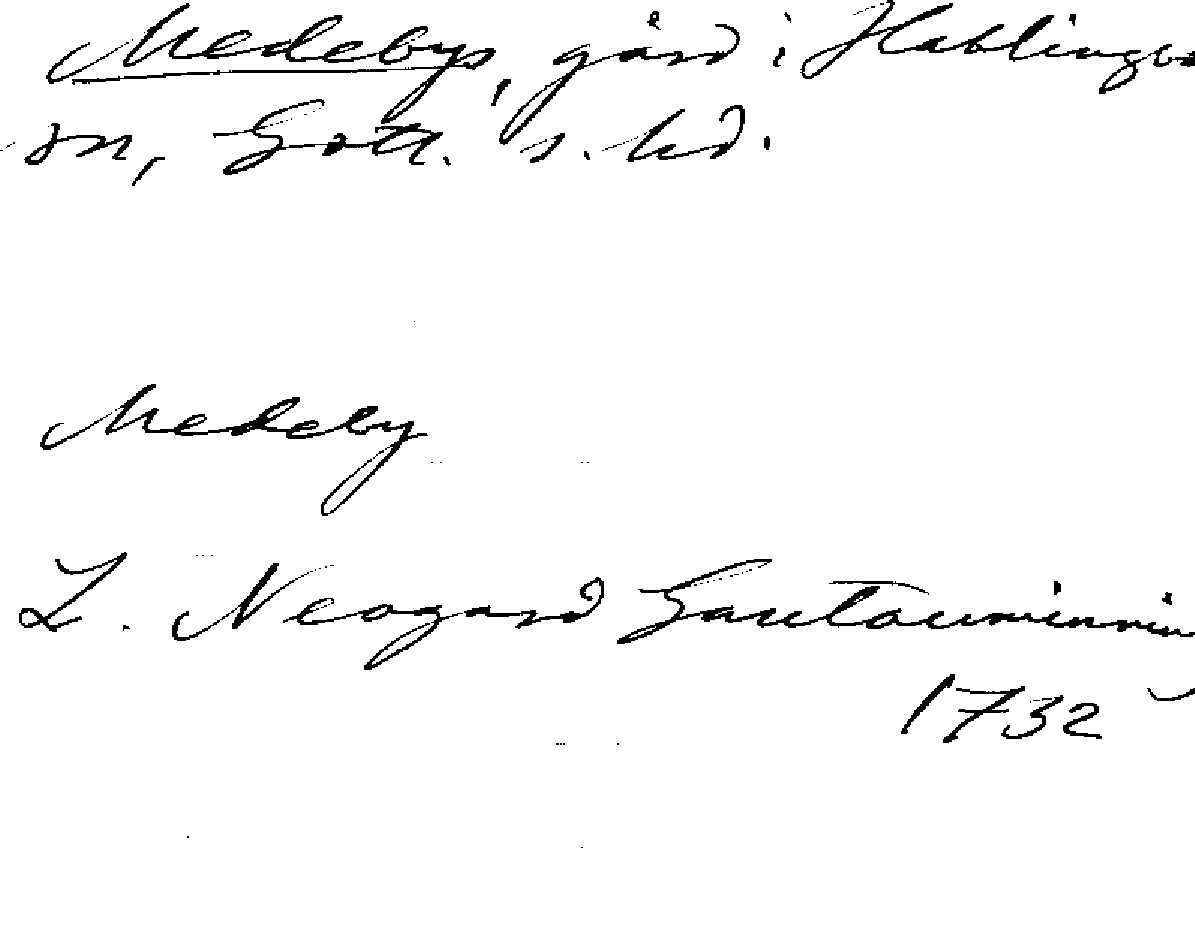 Medebys, gård i Hablingbo
sn, Gotl. s. hd.
Medeby
L. Neogard Gautauminnin
1732